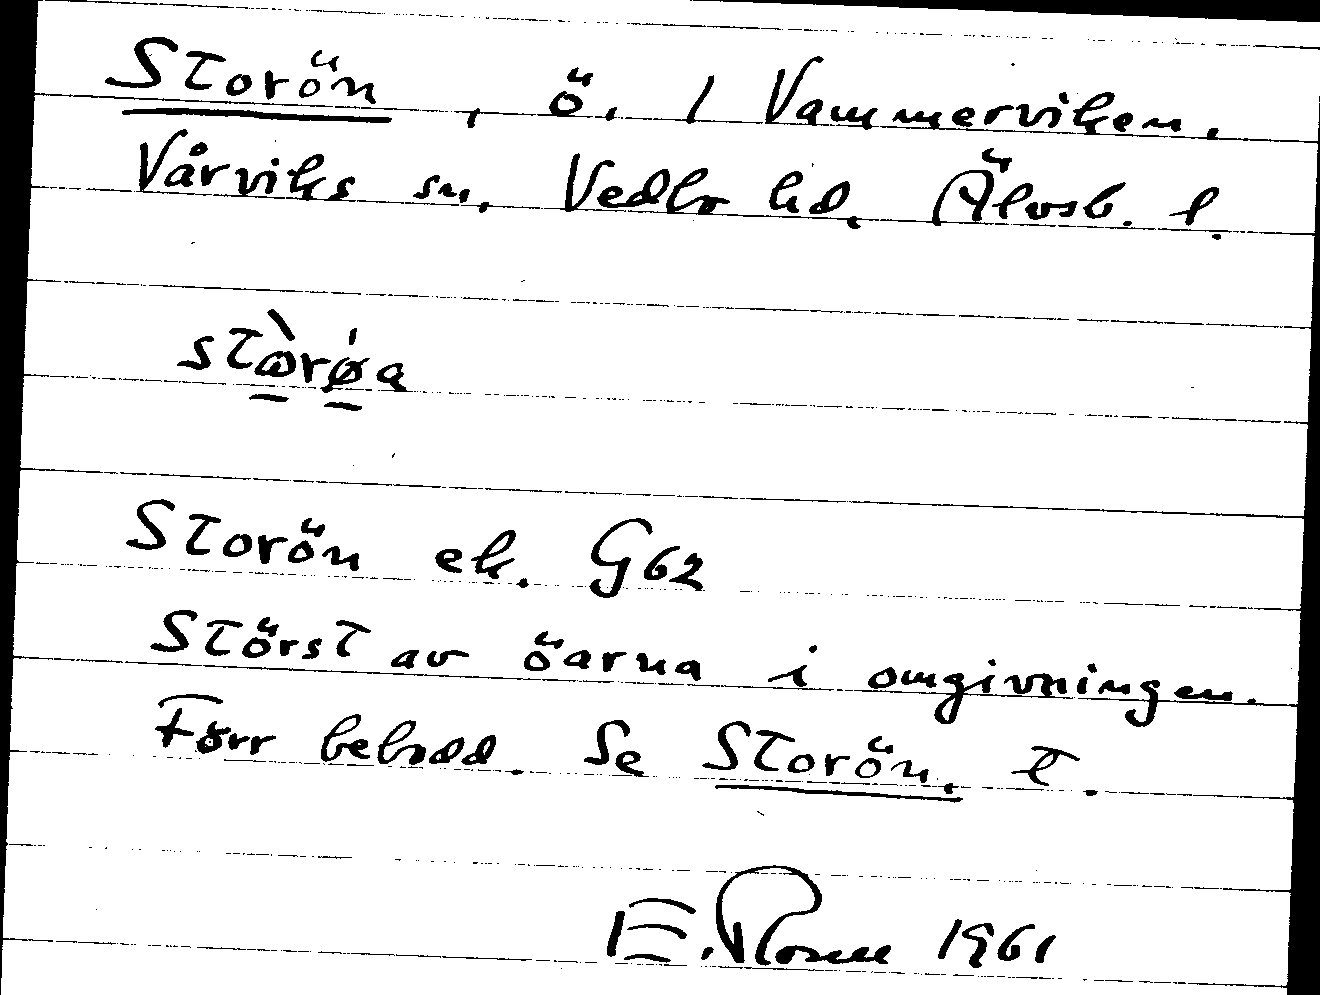 Storön, ö. i Vammerviken.
Vårviks sn. Vedbo hd. Älvsb. l.
stɷ̀rǿa
Storön ek. G62
Störst av öarna i omgivningen.
Förr bebodd. Se Storön, t.
E. Rosell 1961